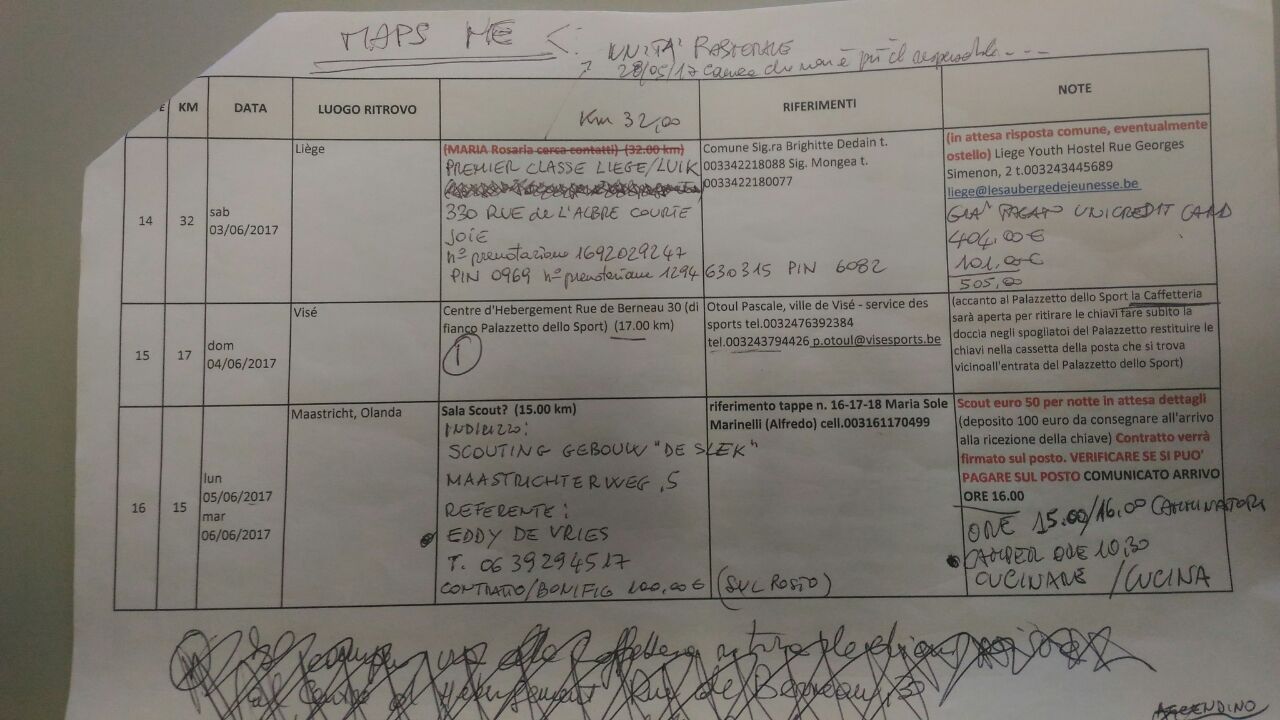 MAPS ME <:
UNITA' PASTORALE
28/05/17 che non è più il responsabile ----
E KM DATA LUOGO RITROVO Km 32,00 RIFERIMENTI NOTE
14
32
sab
03/06/2017
Liège
(MARIA Rosaria cerca contatti) (32.00 km)
PREMIER CLASSE LIEGE/LUIK
330 RUE de L'ALBRE COURTE
JOIE
n° prenotazione 1692029247
PIN 0969 n° prenotazione 1294 630315 PIN 6082
Comune Sig.ra Brighitte Dedain t.
003342218088 Sig. Mongea t.
0033422180077
(in attesa risposta comune, eventualmente
ostello) Liege Youth Hostel Rue Georges
Simenon, 2 t.003243445689
liege@lesaubergedejeunesse.be
GIA' PAGATO UNICREDIT CARD
404,00€
101,00€
505,00
15
17
dom
04/06/2017
Visé
Centre d'Hebergement Rue de Berneau 30 (di
fianco Palazzetto dello Sport) (17.00 km)
1
Otoul Pascale, ville de Visé - service des
sports tel.0032476392384
tel.003243794426 p.otoul@visesports.be
(accanto al Palazzetto dello Sport la Caffetteria
sarà aperta per ritirare le chiavi fare subito la
doccia negli spogliatoi del Palazzetto restituire le
chiavi nella cassetta della posta che si trova
vicinoall'entrata del Palazzetto dello Sport)
16
15
lun
05/06/2017
mar
06/06/2017
Maastricht, Olanda
Sala Scout? (15.00 km)
INDIRIZZO:
SCOUTING GEBOUW "DE SLEK"
MAASTRICHTERWEG ,5
REFERENTE:
EDDY DE VRIES
T. 0639294517
CONTRATTO/BONIFIC 100,00€ (SUL POSTO)
riferimento tappe n. 16-17-18 Maria Sole
Marinelli (Alfredo) cell.003161170499
Scout euro 50 per notte in attesa dettagli
(deposito 100 euro da consegnare all'arrivo
alla ricezione della chiave) Contratto verrà
firmato sul posto. VERIFICARE SE SI PUO'
PAGARE SUL POSTO COMUNICATO ARRIVO
ORE 16.00
ORE 15.00/16.00 CAMMINATORI
CAMPER ORE 10,30
CUCINARE / CUCINA
Rue de Berneau, 30
ASCENDINO